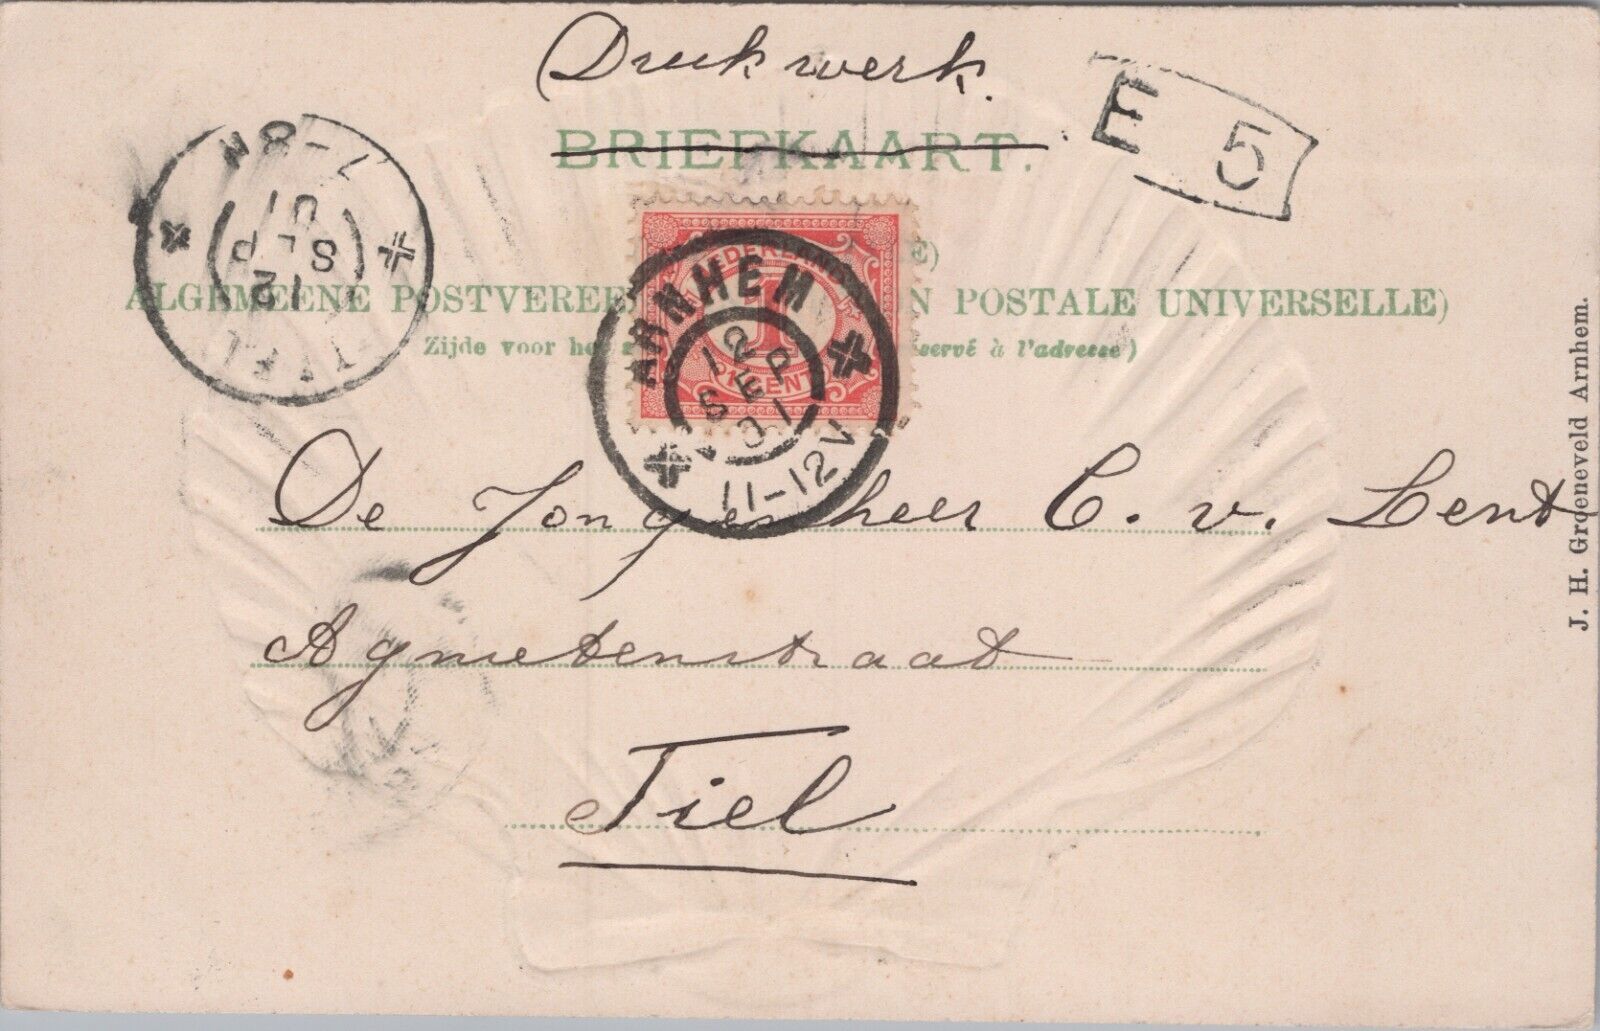 Drukwerk.
BRIEFKAART.
E 5
7-8N
12
SEP
01
TIEL
ALGEMEENE POSTVEREE N POSTALE UNIVERSELLE)
Zijde voor he servé à l'adresse)
NEDERLAND
1
1 CENT
ARNHEM
12
SEP
01
11-12V
De Jongenheer C. v. Lent
Agnietenstraat
Tiel
J. H. Groeneveld Arnhem.